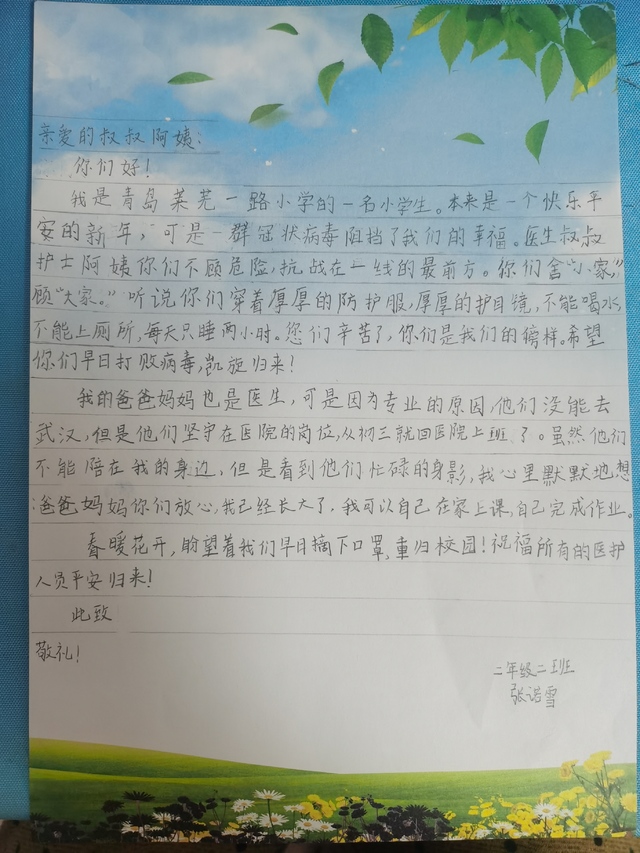 亲爱的叔叔阿姨：
你们好！
我是青岛莱芜一路小学的一名小学生。本来是一个快乐平
安的新年，可是一群冠状病毒阻挡了我们的幸福。医生叔叔
护士阿姨你们不顾危险，抗战在一线的最前方。你们舍“小家”，
顾“大家”。听说你们穿着厚厚的防护服，厚厚的护目镜，不能喝水，
不能上厕所，每天只睡两小时。您们辛苦了，你们是我们的榜样。希望
你们早日打败病毒，凯旋归来！
我的爸爸妈妈也是医生，可是因为专业的原因，他们没能去
武汉，但是他们坚守在医院的岗位，从初三就回医院上班了。虽然他们
不能陪在我的身边，但是看到他们忙碌的身影，我心里默默地想：
爸爸妈妈你们放心，我已经长大了，我可以自己在家上课，自己完成作业。
春暖花开，盼望着我们早日摘下口罩，重归校园！祝福所有的医护
人员平安归来！
此致
敬礼！
二年级二班
张诺雪